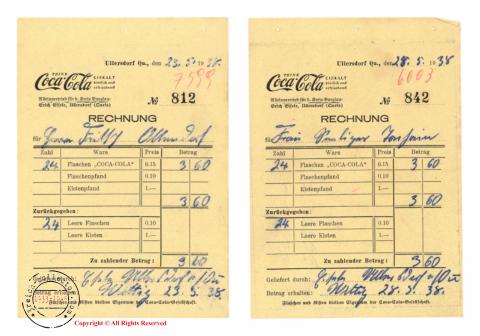 Ullersdorf Qu., den 23. 5. 1938.
TRINK
Coca-Cola EISKALT
köstlich und erfrischend
7599
Alleinvertrieb für d. Kreis Bunzlau:
Nº 812
RECHNUNG
für Herrn
Zahl Ware Preis Betrag
24 Flaschen „COCA-COLA“ 0.15 3 60
Flaschenpfand 0.10
Kistenpfand 1.—
3 60
Zurückgegeben:
24 Leere Flaschen 0.10
Leere Kisten 1.—
Zu zahlender Betrag: 3 60
Geliefert durch:
Betrag erhalten: 23. 5. 38.
Flaschen und Kisten bleiben Eigentum der Coca-Cola-Gesellschaft.
Copyright © All Rights Reserved
Ullersdorf Qu., den 28. 5. 1938
TRINK
Coca-Cola EISKALT
köstlich und erfrischend
6003
Alleinvertrieb für d. Kreis Bunzlau:
Nº 842
RECHNUNG
für Frau
Zahl Ware Preis Betrag
24 Flaschen „COCA-COLA“ 0.15 3 60
Flaschenpfand 0.10
Kistenpfand 1.—
3 60
Zurückgegeben:
24 Leere Flaschen 0.10
Leere Kisten 1.—
Zu zahlender Betrag: 3 60
Geliefert durch:
Betrag erhalten: 28. 5. 38.
Flaschen und Kisten bleiben Eigentum der Coca-Cola-Gesellschaft.